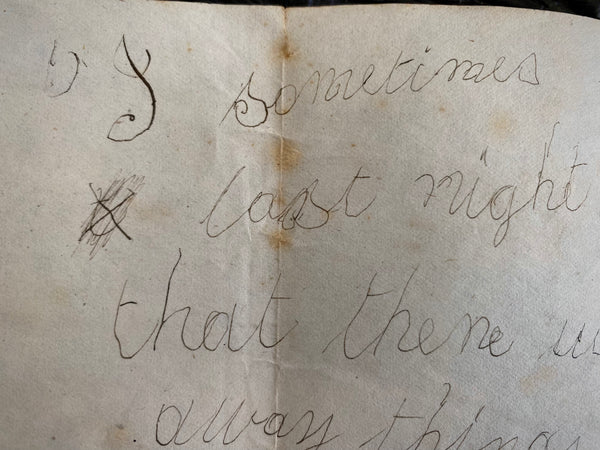 I sometimes
last night
that there
away things